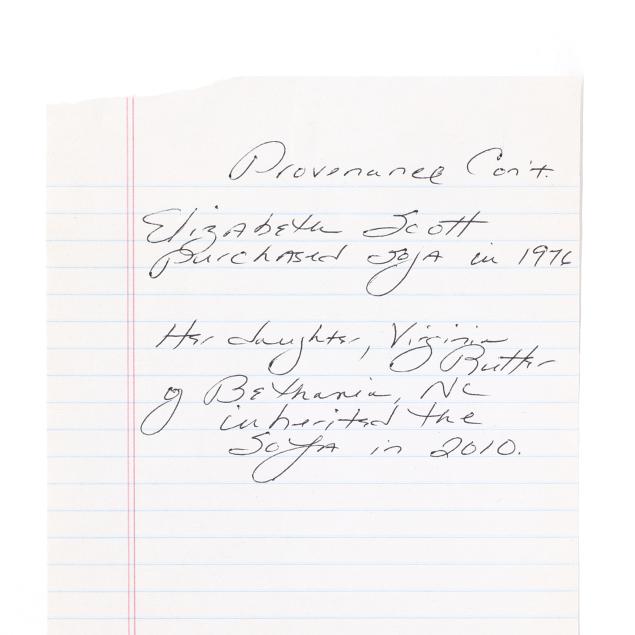 Provenance Con't.
Elizabeth Scott
purchased sofa in 1976
Her daughter, Virginia
Butler
of Bethania, NC
inherited the
sofa in 2010.